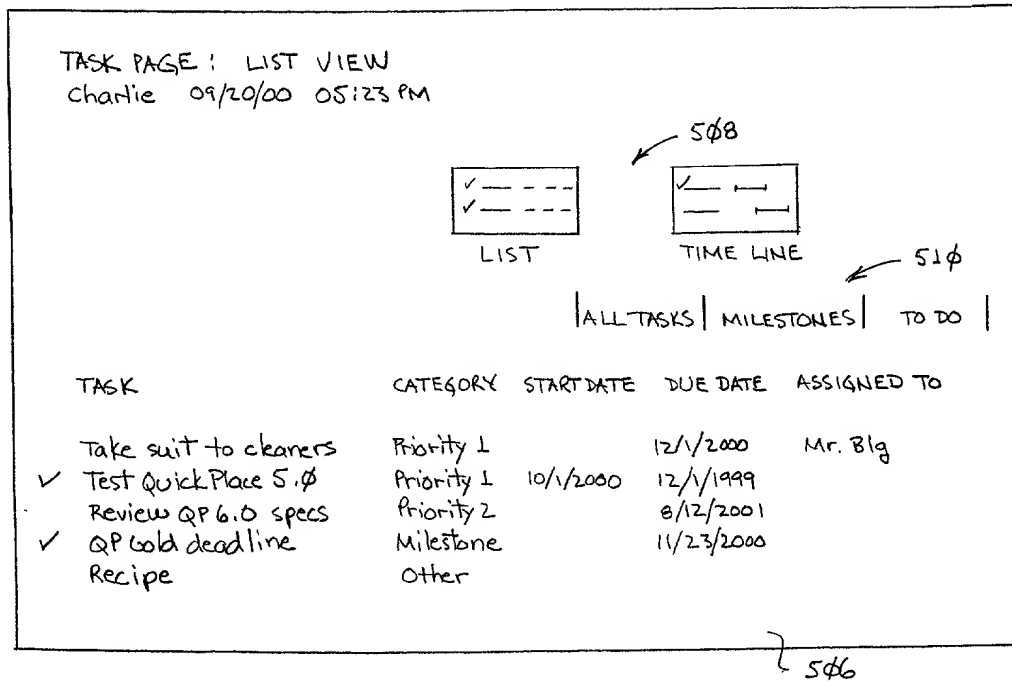 TASK PAGE: LIST VIEW
Charlie 09/20/00 05:23 PM
5Ø8
LIST TIME LINE
51Ø
ALL TASKS MILESTONES TO DO
TASK CATEGORY START DATE DUE DATE ASSIGNED TO
Take suit to cleaners Priority 1 12/1/2000 Mr. Big
✓ Test QuickPlace 5.Ø Priority 1 10/1/2000 12/1/1999
Review QP 6.0 specs Priority 2 8/12/2001
✓ QP Gold deadline Milestone 11/23/2000
Recipe Other
5Ø6